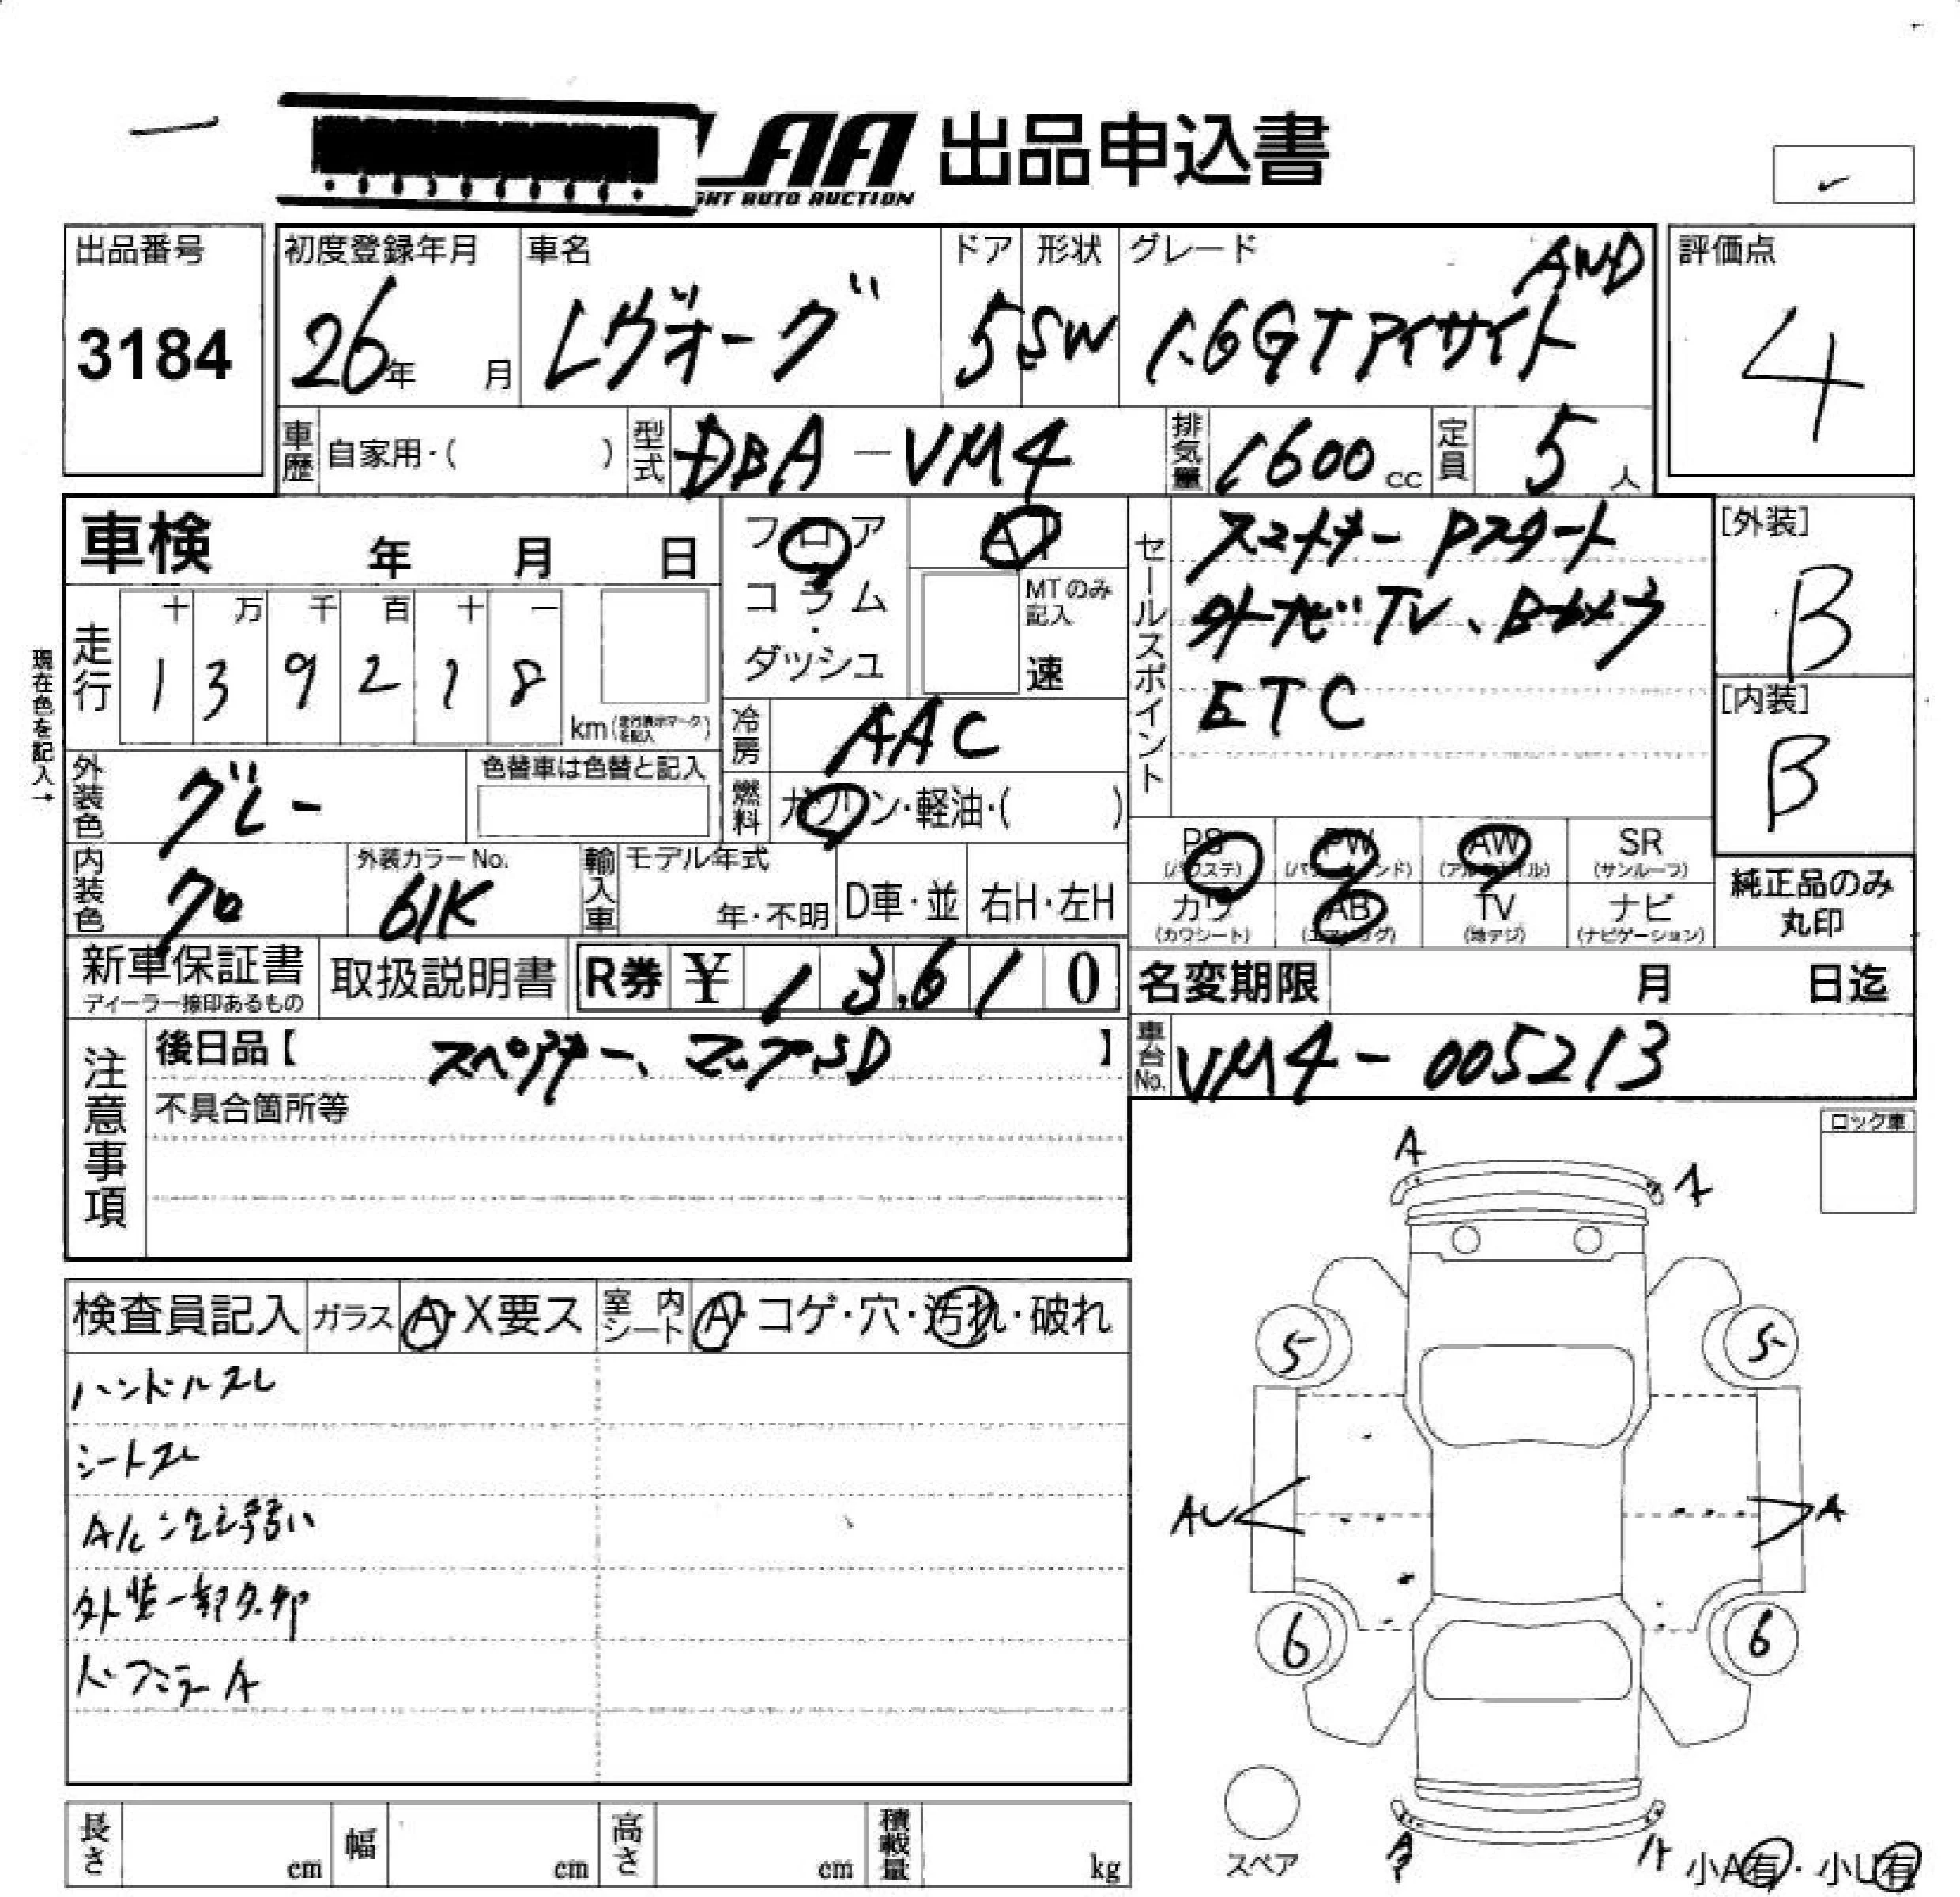 LAA 出品申込書
GHT AUTO AUCTION
出品番号
3184
初度登録年月
26年 月
車名
レヴォーグ
ドア
5
形状
SW
グレード
AWD
1.6GTアイサイト
評価点
4
車歴 自家用・( )
型式 DBA-VM4
排気量 1600 cc
定員 5 人
車検 年 月 日
フロア
コラム
・
ダッシュ
AT
MTのみ
記入
速
セールスポイント
スマートキー Pスタート
外ナビ TV、Bカメラ
ETC
[外装]
B
[内装]
B
現在色を記入→
走行
十 万 千 百 十 一
1 3 9 2 1 8
km (走行表示マークを記入)
冷房 AAC
外装色 グレー
色替車は色替と記入
燃料 ガソリン・軽油・( )
内装色 クロ
外装カラーNo.
61K
輸入車 モデル年式
年・不明
D車・並
右H・左H
PS
(パワステ)
PW
(パワーウインド)
AW
(アルミホイル)
SR
(サンルーフ)
カワ
(カワシート)
AB
(エアバッグ)
TV
(地デジ)
ナビ
(ナビゲーション)
純正品のみ
丸印
新車保証書
ディーラー捺印あるもの
取扱説明書
R券 ¥ 13,610
名変期限 月 日迄
注意事項
後日品【 スペアキー、マップSD 】
不具合箇所等
車台No. VM4-005213
ロック車
検査員記入
ガラス A・X要ス
室内シート A・コゲ・穴・汚れ・破れ
ハンドルスレ
シートスレ
A/C
弱い
外装一部
ドアミラーA
A
A
5
5
AU
A
6
6
A
A
スペア
小A有・小U有
長さ cm
幅 cm
高さ cm
積載量 kg